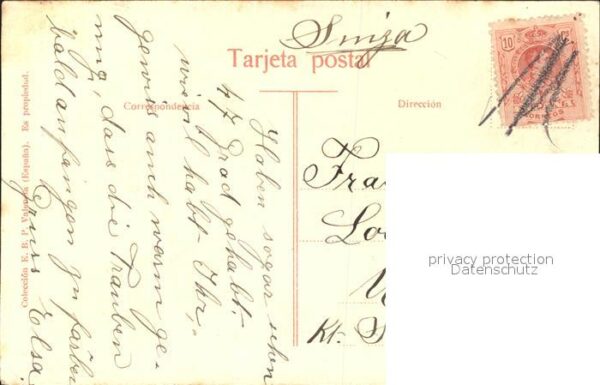 Suiza
Tarjeta postal
Correspondencia
Dirección
Colección E. B. P. Valencia (España). Es propiedad.
10 Cs
CORREOS
Haben sogar schon
47 Grad gehabt.
wieviel habt Ihr,
gewis auch warm ge-
nug, dass die Trauben
bald anfangen zu färben
Gruss Elsa.
Fra
Lo
Kt. S
privacy protection
Datenschutz